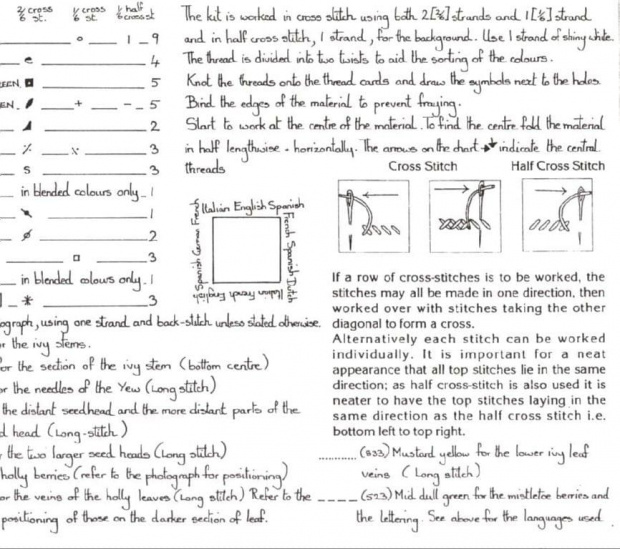 2/6 cross st. 1/6 cross st. 1/6 half cross st
o 1 9
e 4
EEN. 5
EN. + – 5
2
٪ x 3
S 3
in blended colours only 1
1
ø 2
3
in blended colours only. 1
* 3
The kit is worked in cross stitch using both 2[2/6] strands and 1[1/6] strand
and in half cross stitch, 1 strand, for the background. Use 1 strand of shiny white.
The thread is divided into two twists to aid the sorting of the colours.
Knot the threads onto the thread cards and draw the symbols next to the holes.
Bind the edges of the material to prevent fraying.
Start to work at the centre of the material. To find the centre fold the material
in half lengthwise + horizontally. The arrows on the chart indicate the central
threads
Cross Stitch Half Cross Stitch
Italian English Spanish
French Spanish Dutch
Italian French English
Spanish German French
If a row of cross-stitches is to be worked, the
stitches may all be made in one direction, then
worked over with stitches taking the other
diagonal to form a cross.
Alternatively each stitch can be worked
individually. It is important for a neat
appearance that all top stitches lie in the same
direction; as half cross-stitch is also used it is
neater to have the top stitches laying in the
same direction as the half cross stitch i.e.
bottom left to top right.
ograph, using one strand and back-stitch unless stated otherwise.
r the ivy stems.
or the section of the ivy stem (bottom centre)
or the needles of the Yew (Long stitch)
the distant seedhead and the more distant parts of the
d head (Long-stitch)
the two larger seed heads (Long stitch)
holly berries (refer to the photograph for positioning)
or the veins of the holly leaves (Long stitch) Refer to the
positioning of those on the darker section of leaf.
............ (833) Mustard yellow for the lower ivy leaf
veins (Long stitch)
_ _ _ _ (523) Mid. dull green for the mistletoe berries and
the lettering. See above for the languages used.